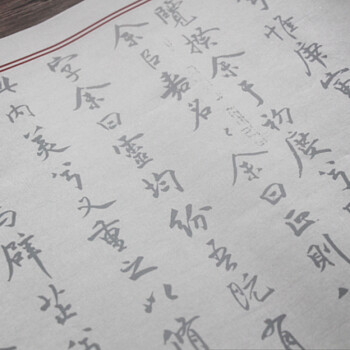 惟庚寅
覽揆余于初度兮
余以嘉名、余曰正則、
字余曰靈均紛吾既有
內美兮又重之以脩
辟芷兮